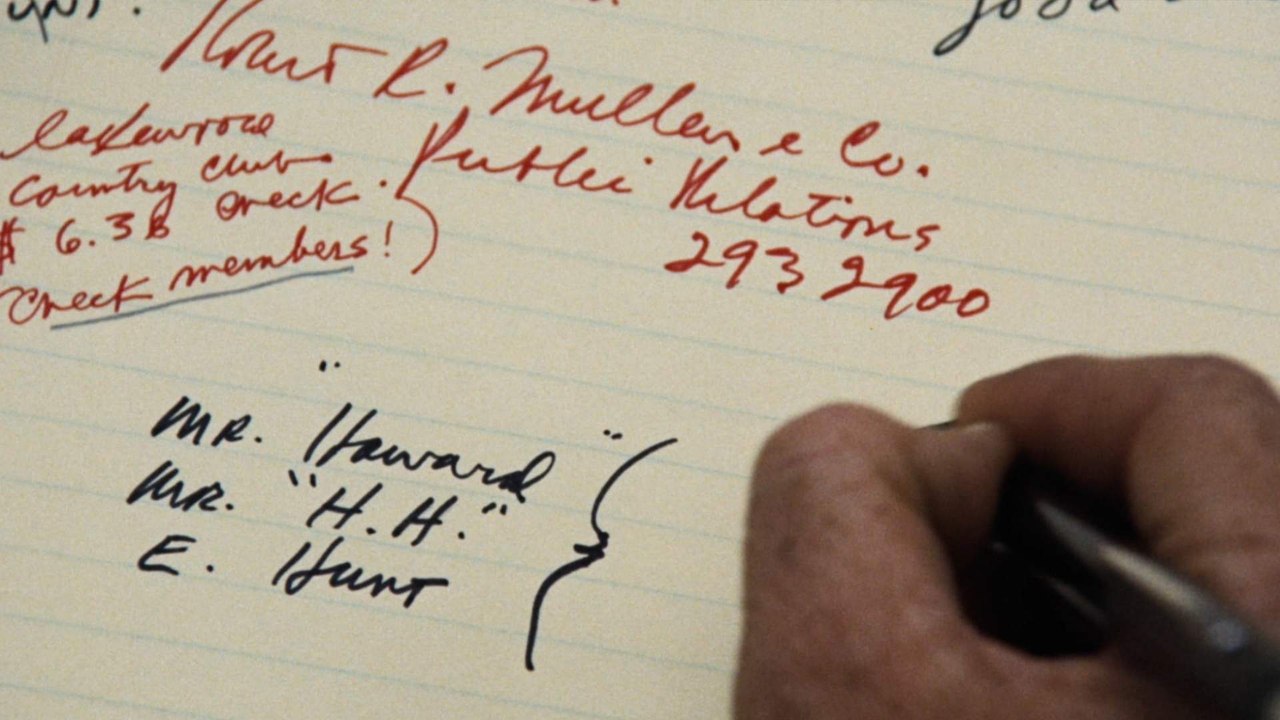 Robert R. Mullen & Co.
Public Relations
293 2900
Lakewood
Country Club
$ 6.3B check
Check members!)
Mr. "Howard"
Mr. "H.H."
E. Hunt